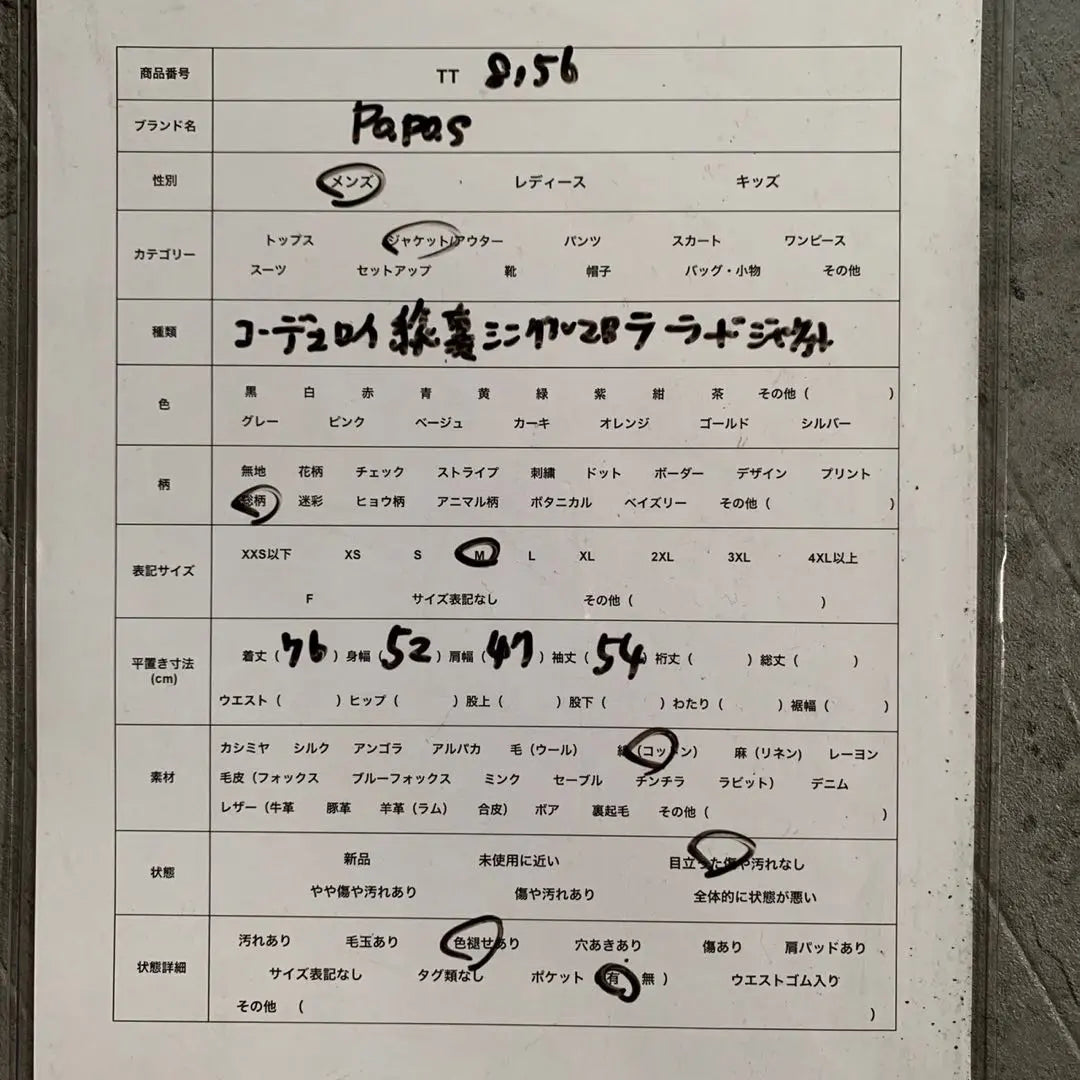 商品番号 TT 8,56
ブランド名 Papas
性別 メンズ レディース キッズ
カテゴリー トップス ジャケット/アウター パンツ スカート ワンピース
スーツ セットアップ 靴 帽子 バッグ・小物 その他
種類 コーデュロイ 総裏 シングル2B テーラードジャケット
色 黒 白 赤 青 黄 緑 紫 紺 茶 その他 ( )
グレー ピンク ベージュ カーキ オレンジ ゴールド シルバー
柄 無地 花柄 チェック ストライプ 刺繍 ドット ボーダー デザイン プリント
総柄 迷彩 ヒョウ柄 アニマル柄 ボタニカル ベイズリー その他 ( )
表記サイズ XXS以下 XS S M L XL 2XL 3XL 4XL以上
F サイズ表記なし その他 ( )
平置き寸法 (cm) 着丈 (76) 身幅 (52) 肩幅 (47) 袖丈 (54) 裄丈 ( ) 総丈 ( )
ウエスト ( ) ヒップ ( ) 股上 ( ) 股下 ( ) わたり ( ) 裾幅 ( )
素材 カシミヤ シルク アンゴラ アルパカ 毛 (ウール) 綿 (コットン) 麻 (リネン) レーヨン
毛皮 (フォックス ブルーフォックス ミンク セーブル チンチラ ラビット) デニム
レザー (牛革 豚革 羊革 (ラム) 合皮) ボア 裏起毛 その他 ( )
状態 新品 未使用に近い 目立った傷や汚れなし
やや傷や汚れあり 傷や汚れあり 全体的に状態が悪い
状態詳細 汚れあり 毛玉あり 色褪せあり 穴あきあり 傷あり 肩パッドあり
サイズ表記なし タグ類なし ポケット (有・無 ) ウエストゴム入り
その他 ( )